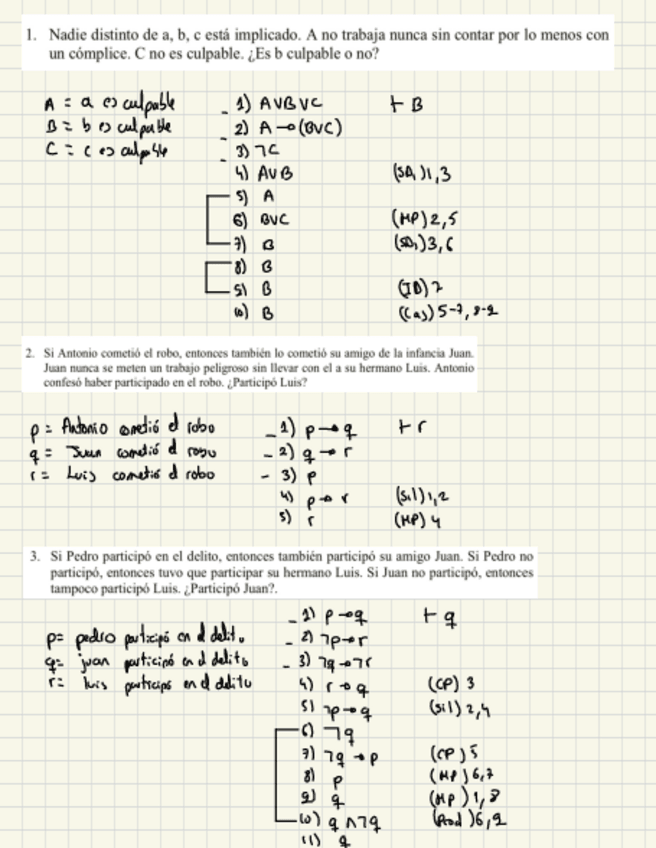 1. Nadie distinto de a, b, c está implicado. A no trabaja nunca sin contar por lo menos con
un cómplice. C no es culpable. ¿Es b culpable o no?
A = a es culpable
B = b es culpable
C = c es culpable
- 1) A∨B∨C ⊢ B
- 2) A→(B∨C)
- 3) ¬C
4) A∨B (SD,)1,3
5) A
6) B∨C (MP)2,5
7) B (SD,)3,6
8) B
9) B (ID)7
10) B (Cas)5-7, 8-9
2. Si Antonio cometió el robo, entonces también lo cometió su amigo de la infancia Juan.
Juan nunca se meten un trabajo peligroso sin llevar con el a su hermano Luis. Antonio
confesó haber participado en el robo. ¿Participó Luis?
p = Antonio cometió el robo
q = Juan cometió el robo
r = Luis cometió el robo
- 1) p→q ⊢ r
- 2) q→r
- 3) p
4) p→r (Sil)1,2
5) r (MP)4
3. Si Pedro participó en el delito, entonces también participó su amigo Juan. Si Pedro no
participó, entonces tuvo que participar su hermano Luis. Si Juan no participó, entonces
tampoco participó Luis. ¿Participó Juan?.
p= pedro participó en el delito
q= juan participó en el delito
r= luis participó en el delito
- 1) p→q ⊢ q
- 2) ¬p→r
- 3) ¬q→¬r
4) r→q (CP) 3
5) ¬p→q (Sil) 2,4
6) ¬q
7) ¬q→p (CP)5
8) p (MP)6,7
9) q (MP)1,8
10) q∧¬q (Prod)6,9
11) q